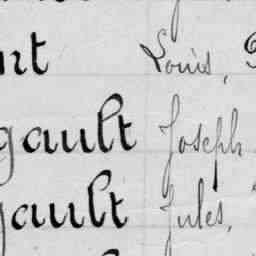 Louis,
gault Joseph
gault Jules,